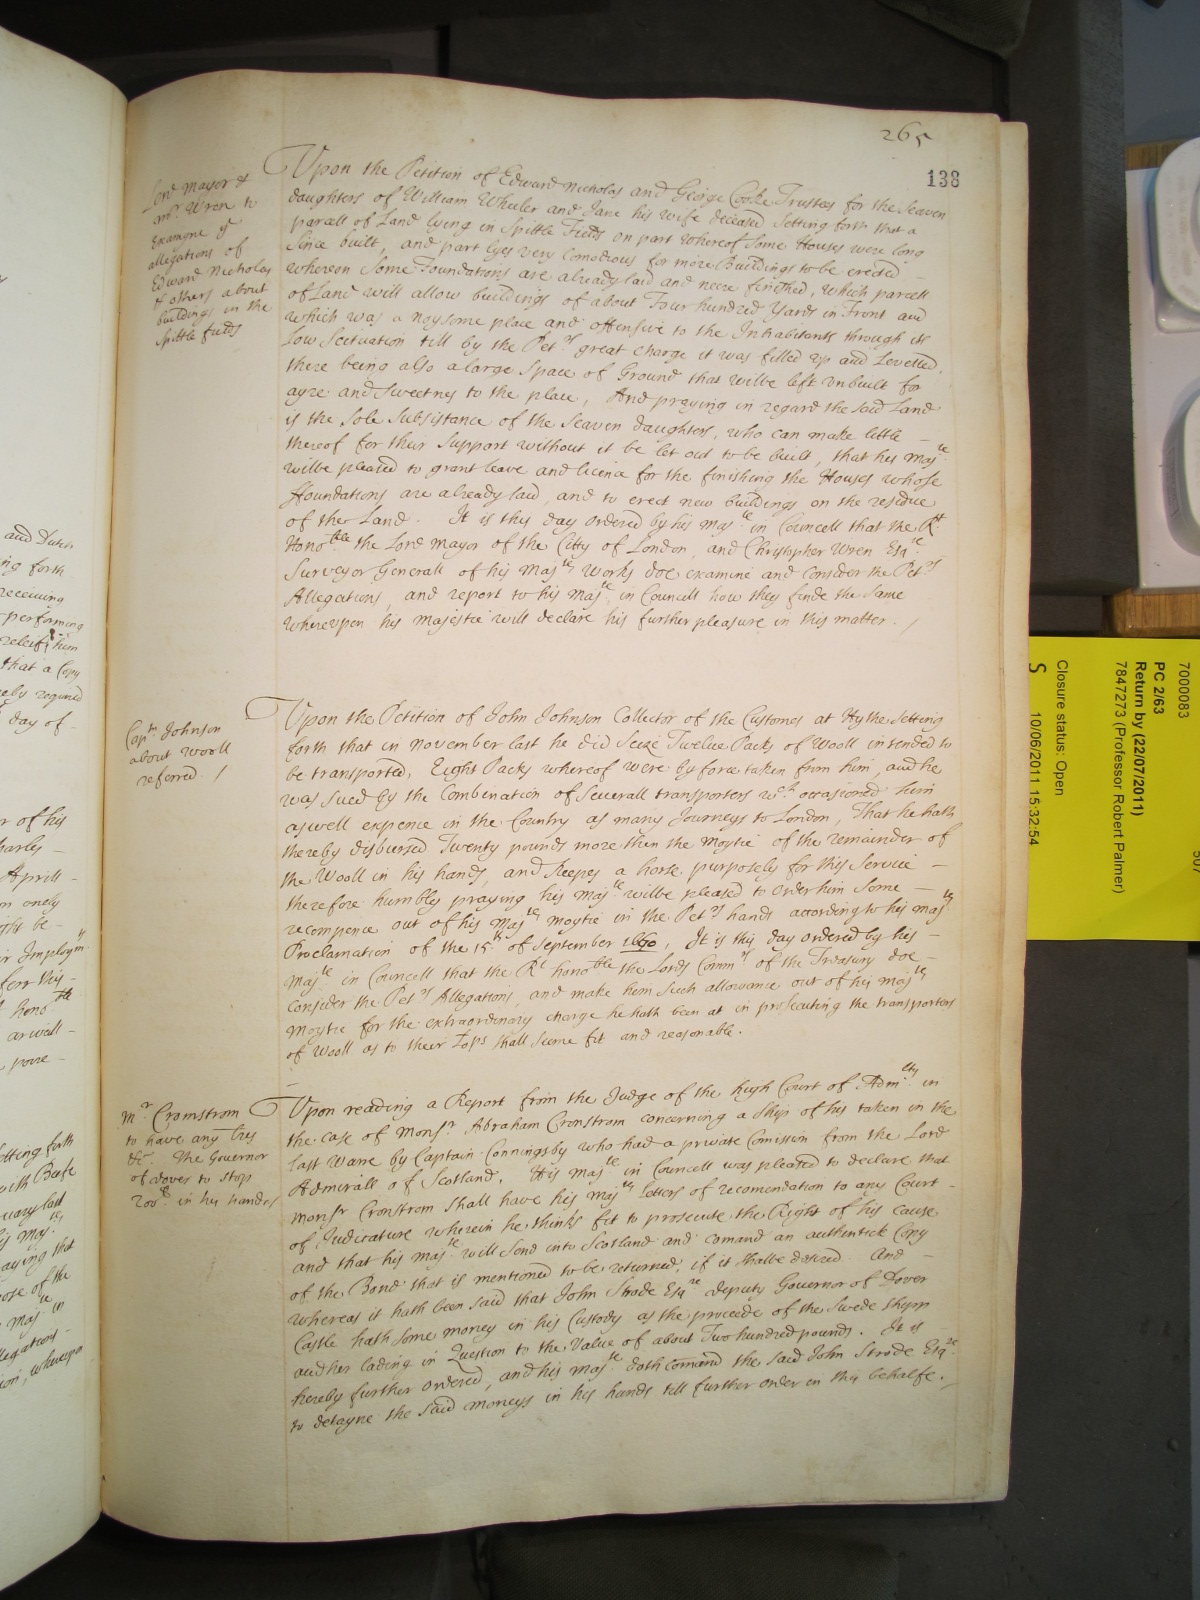 265
138
Lord Mayor &
Mr. Wren to
Examyne ye
allegations of
Edward Nicholas
& others about
buildings in the
Spittle fields
Upon the Petition of Edward Nicholas and George Cooke Trustees for the Seaven
daughters of William Wheeler and Jane his Wife deceased Setting forth that a
parcell of Land lying in Spittle Fields on part whereof Some Houses were long
Since built, and part lyes very Comodious for more Buildings to be erected
whereon Some Foundations are already laid and neere finished, which parcell
of Land will allow buildings of about Four hundred Yards in Front and
which was a noysome place and offensive to the Inhabitants through its
Low Scituation till by the Petrs great charge it was filled up and Levelled,
there being also a large Space of Ground that wilbe left unbuilt for
ayre and Sweetnes to the place, And praying in regard the said Land
is the Sole Subsistance of the Seaven daughters, who can make little
thereof for their Support without it be let out to be built, that his Majtie
wilbe pleased to grant leave and licence for the finishing the Houses whose
ffoundations are already laid, and to erect new buildings on the residue
of the Land. It is this day Ordered by his Majtie in Councell that the Rt
Honoble the Lord Mayor of the Citty of London, and Christopher Wren Esqre
Surveyor Generall of his Majtes Works doe examine and consider the Petrs
Allegations, and report to his Majtie in Councell how they finde the Same
Whereupon his Majestie will declare his further pleasure in this matter. /
Captn Johnson
about Wooll
referred. /
Upon the Petition of John Johnson Collector of the Customes at Hythe Setting
forth that in November last he did Seize Twelve Packs of Wooll intended to
be transported, Eight Packs whereof were by force taken from him, and he
was Sued by the Combination of Severall transporters wch occasioned him
aswell expence in the Country as many Journeys to London, That he hath
thereby disbursed Twenty pounds more then the Moytie of the remainder of
the Wooll in his hands, and Keepes a horse purposely for this Service
therefore humbly praying his Majtie wilbe pleased to Order him Some
recompence out of his Majtes Moytie in the Petrs hands according to his Majtes
Proclamation of the 15th of September 1660, It is this day Ordered by his
Majtie in Councell that the Rt honoble the Lords Commrs of the Treasury doe
consider the Petrs Allegations, and make him Such allowance out of his Majtes
Moytie for the extraordinary charge he hath been at in prosecuting the transporters
of Wooll as to their Lops Shall Seeme fit and reasonable.
Mr Cronstrom
to have any Lres
&c. The Governor
of Dover to Stop
200li in his hands
Upon reading a Report from the Judge of the high Court of Admlty in
the case of Monsr Abraham Cronstrom concerning a Ship of his taken in the
last Warre by Captain Conningsby who had a private Comission from the Lord
Admirall of Scotland, His Majtie in Councell was pleased to declare that
Monsr Cronstrom Shall have his Majtes letters of recomendation to any Court
of Judicature wherein he thinks fit to prosecute the Right of his cause
and that his Majtie will Send into Scotland and comand an authentick Copy
of the Bond that is mentioned to be returned, if it Shalbe desired And
whereas it hath been said that John Strode Esqre deputy Governor of Dover
Castle hath Some money in his Custody as the proceede of the Swede Shipp
and her lading in Question to the Value of about Two hundred pounds. It is
hereby further Ordered, and his Majtie doth Comand the said John Strode Esqre
to detayne the said moneys in his hands till further Order in this behalfe. /
and Dutch
ing forth
receiving
performing
him
that a Copy
reby required
day of
r of his
harles
Aprill
m onely
ght be
r Imploymt
ferr this
honoble
aswell
etting forth
with Base
uary last
is Majtes
aying that
ose of the
Majtie in
llegations
ion, whereupon
7000083
PC 2/63
Return by (22/07/2011)
7847273 (Professor Robert Palmer)
Closure status: Open
S
10/06/2011 15:32:54